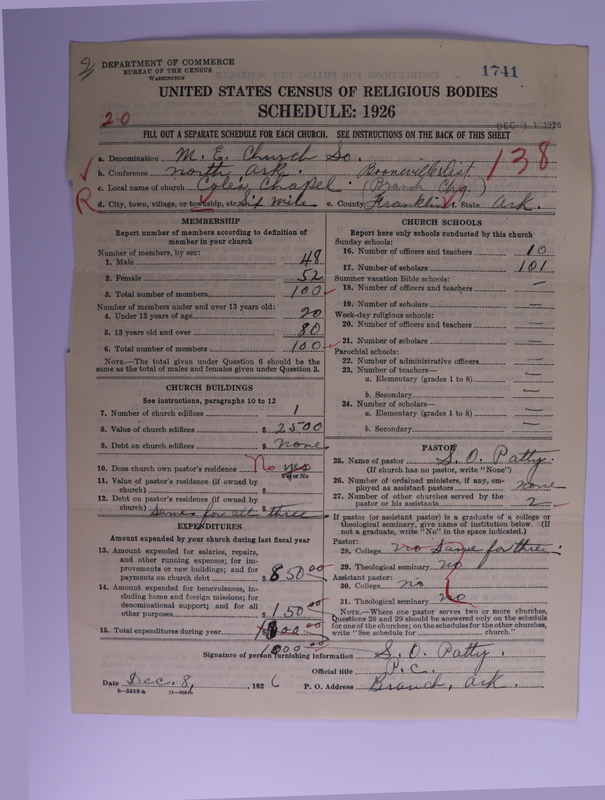 2
DEPARTMENT OF COMMERCE
BUREAU OF THE CENSUS
WASHINGTON
1741
UNITED STATES CENSUS OF RELIGIOUS BODIES
SCHEDULE: 1926
20
DEC 11 1926
FILL OUT A SEPARATE SCHEDULE FOR EACH CHURCH. SEE INSTRUCTIONS ON THE BACK OF THIS SHEET
138
a. Denomination M. E. Church So.
b. Conference North Ark. Booneville Dist.
c. Local name of church Coles Chapel (Branch Chg.)
R
d. City, town, village, or township, etc. Six Mile e. County Franklin State Ark.
MEMBERSHIP
Report number of members according to definition of
member in your church
Number of members, by sex:
1. Male 48
2. Female 52
3. Total number of members 100
Number of members under and over 13 years old:
4. Under 13 years of age 20
5. 13 years old and over 80
6. Total number of members 100
NOTE.—The total given under Question 6 should be
the same as total of males and females given under Question 3.
CHURCH BUILDINGS
See instructions, paragraphs 10 to 12
7. Number of church edifices 1
8. Value of church edifices $ 2500
9. Debt on church edifices $ none
10. Does church own pastor's residence No yes
Yes or No
11. Value of pastor's residence (if owned by
church) $
12. Debt on pastor's residence (if owned by
church) $ Same for all three
EXPENDITURES
Amount expended by your church during last fiscal year
13. Amount expended for salaries, repairs,
and other running expenses; for im-
provements or new buildings; and for
payments on church debt $ 850.00
14. Amount expended for benevolences, in-
cluding home and foreign missions; for
denominational support; and for all
other purposes $ 150.00
15. Total expenditures during year $ 1000.00
CHURCH SCHOOLS
Report here only schools conducted by this church
Sunday schools:
16. Number of officers and teachers 10
17. Number of scholars 101
Summer vacation Bible schools:
18. Number of officers and teachers —
19. Number of scholars —
Week-day religious schools:
20. Number of officers and teachers —
21. Number of scholars —
Parochial schools:
22. Number of administrative officers —
23. Number of teachers—
a. Elementary (grades 1 to 8) —
b. Secondary —
24. Number of scholars—
a. Elementary (grades 1 to 8) —
b. Secondary —
PASTOR
25. Name of pastor S. O. Patty.
(If church has no pastor, write "None")
26. Number of ordained ministers, if any, em-
ployed as assistant pastors none
27. Number of other churches served by the
pastor or his assistants 2
If pastor (or assistant pastor) is a graduate of a college or
theological seminary, give name of institution below. (If
not a graduate, write "No" in the space indicated.)
Pastor:
28. College no Same for three.
29. Theological seminary no
Assistant pastor:
30. College no
31. Theological seminary no
NOTE.—Where one pastor serves two or more churches,
Questions 28 and 29 should be answered only on the schedule
for one of the churches; on the schedules for the other churches,
write "See schedule for church."
Signature of person furnishing information S. O. Patty.
Official title P. C.
Date Dec. 8, 1926 P. O. Address Branch, Ark.
8-5219a